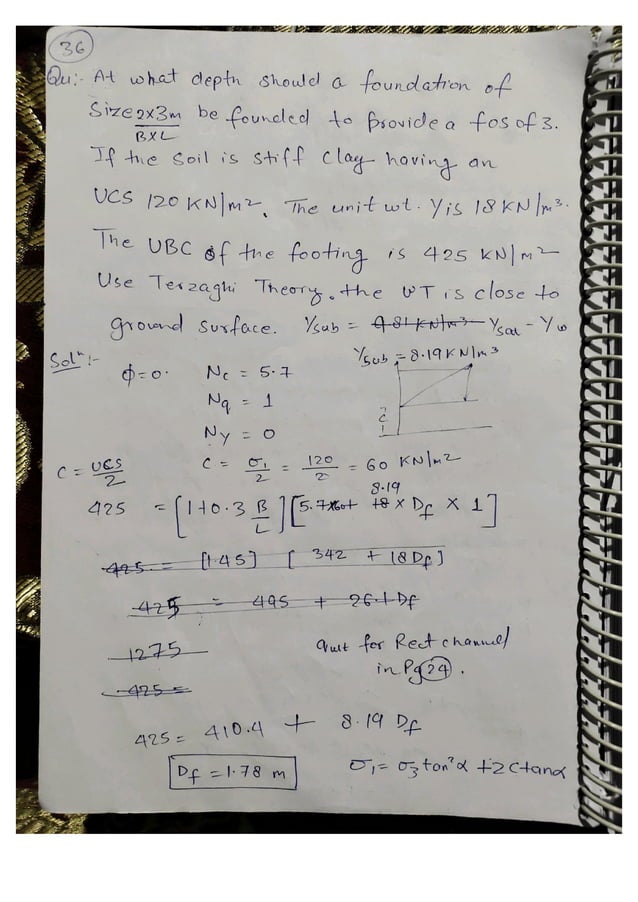 36
Qu:- At what depth should a foundation of
Size 2x3m be founded to provide a fos of 3.
BXL
If the soil is stiff clay having an
UCS 120 KN/m². The unit wt. γ is 18 KN/m³.
The UBC of the footing is 425 KN/m²
Use Terzaghi Theory. the WT is close to
ground surface. γsub = 9.81 KN/m³ γsat - γω
Solⁿ:- γsub = 8.19 KN/m³
φ=0. Nc = 5.7
Nq = 1
Nγ = 0
C
C = UCS/2 C = σ1/2 = 120/2 = 60 KN/m²
8.19
425 = [1+0.3 B/L][5.7x60+ 18 x Df x 1]
425 = [1.45] [342 + 18Df]
425 = 495 + 26.1Df
1275 qult for Rect channel
in Pg 24.
425 =
425 = 410.4 + 8.19 Df
Df = 1.78 m σ1 = σ3 tan²α + 2C tanα